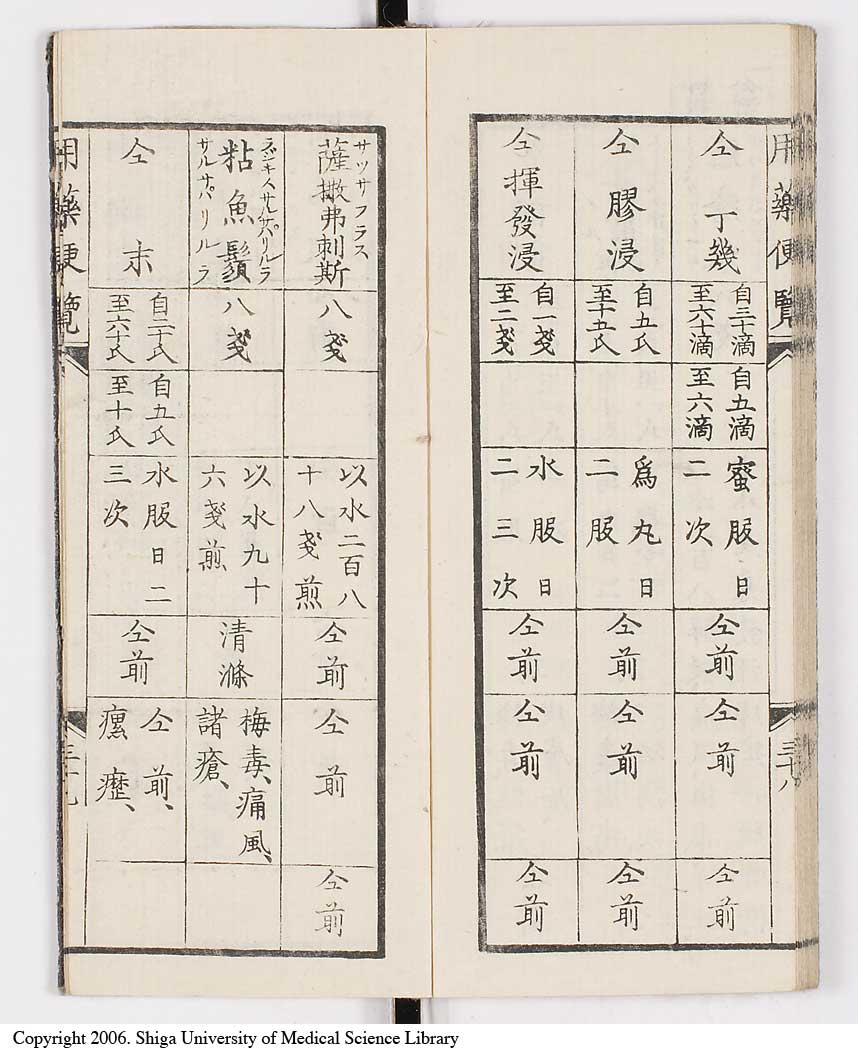 用藥便覽
三十八
仝丁幾
自三十滴
至六十滴
自五滴
至六滴
蜜服日
二次
仝前
仝前
仝前
仝膠浸
自五氏
至十五氏
爲丸日
二服
仝前
仝前
仝前
仝揮發浸
自一戔
至二戔
水服日
二三次
仝前
仝前
仝前
サツサフラス
薩撒弗刺斯
八戔
以水二百八
十八戔煎
仝前
仝前
仝前
粘魚鬚
サルサパリルラ
八戔
以水九十
六戔煎
清滌
梅毒、痛風、
諸瘡、
仝末
自二十氏
至六十氏
自五氏
至十氏
水服日二
三次
仝前
仝前、
瘰癧、
用藥便覽
三十九
Copyright 2006. Shiga University of Medical Science Library